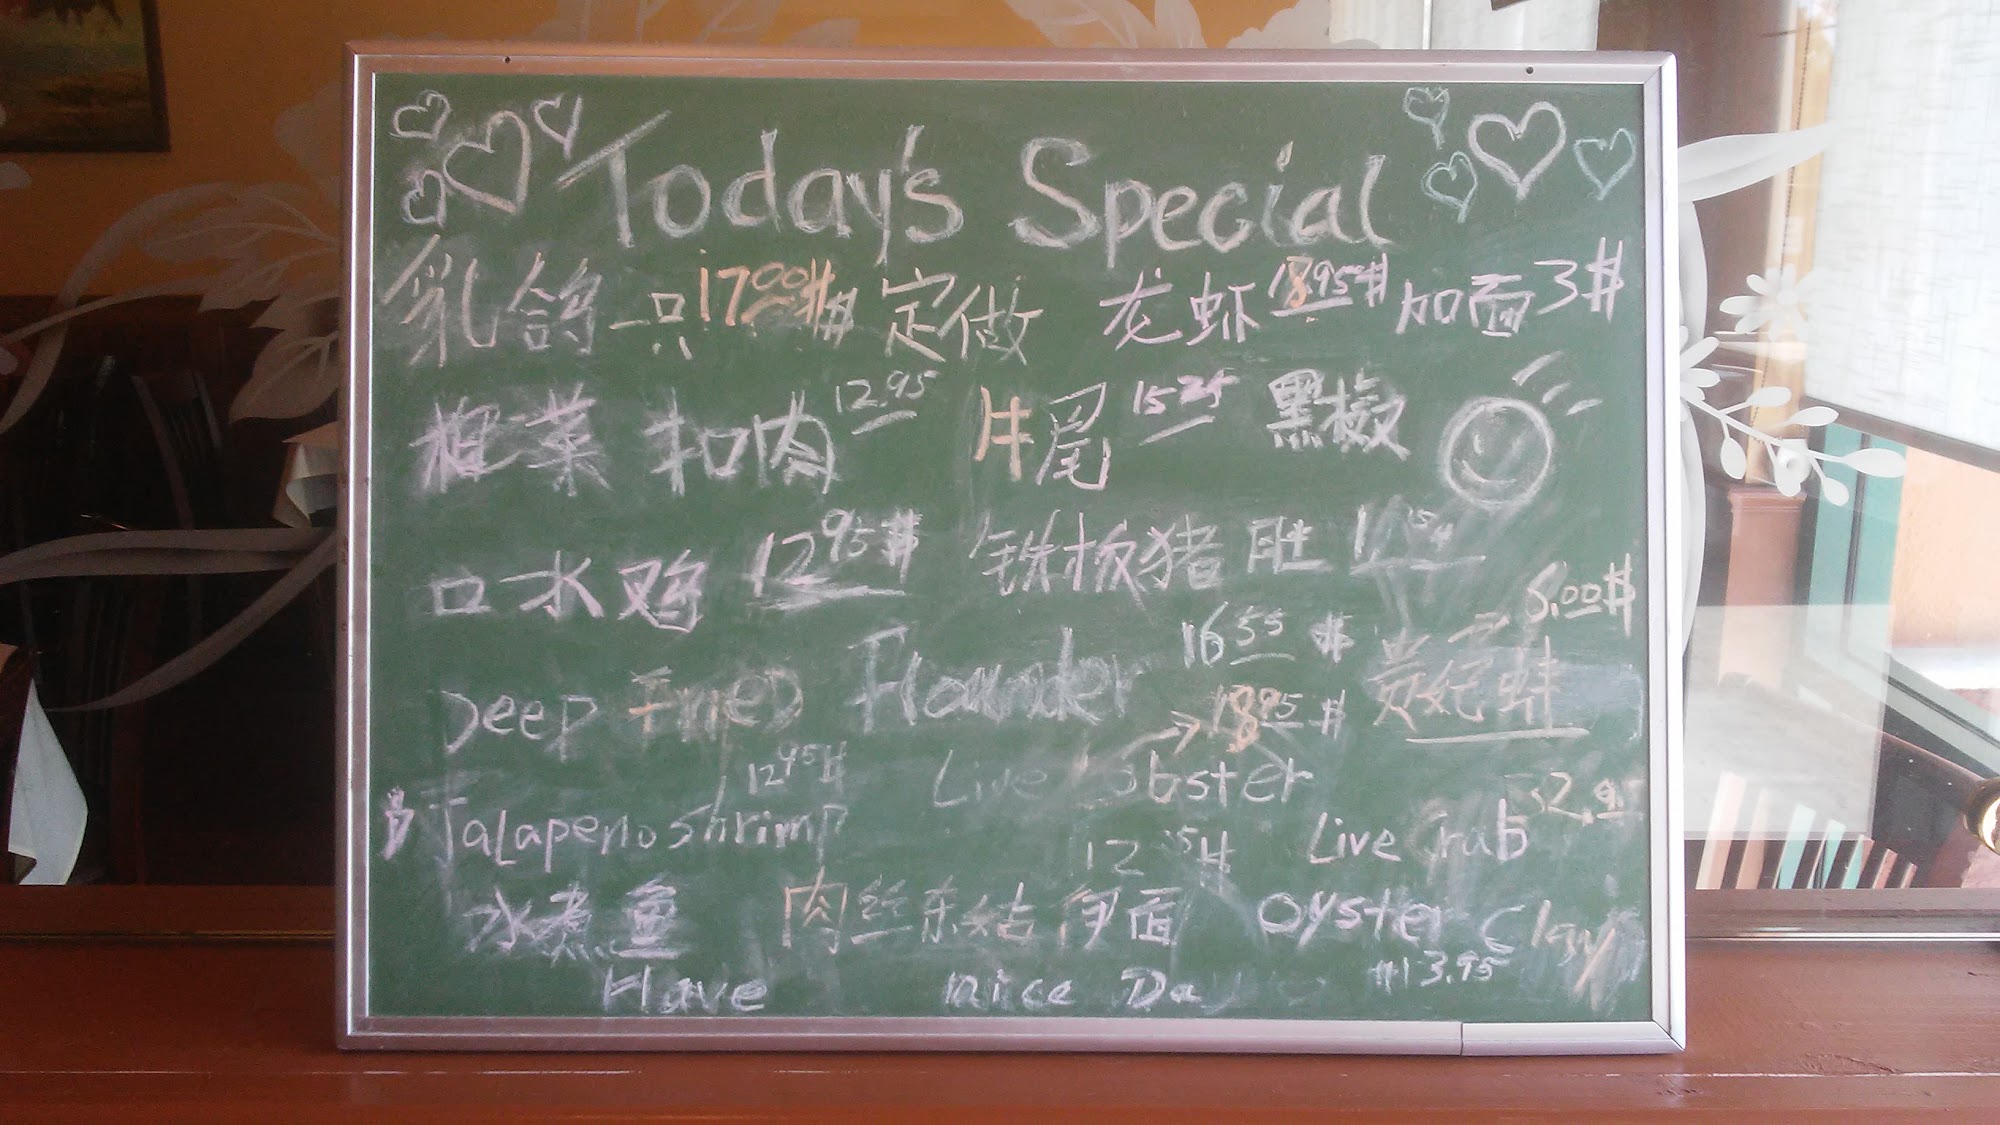 Today's Special
乳鸽 一只 17.00# 定做 龙虾 18.95# 加面 3#
梅菜 扣肉 12.95 牛尾 15.25 黑椒
口水鸡 12.95# 铁板猪肚
8.00#
Deep Fried Flounder 16.55 #
→ 18.95 #
12.95# Live Lobster
Jalapeno Shrimp Live Crab
水煮鱼 肉丝 伊面 Oyster
Have nice Da $13.95